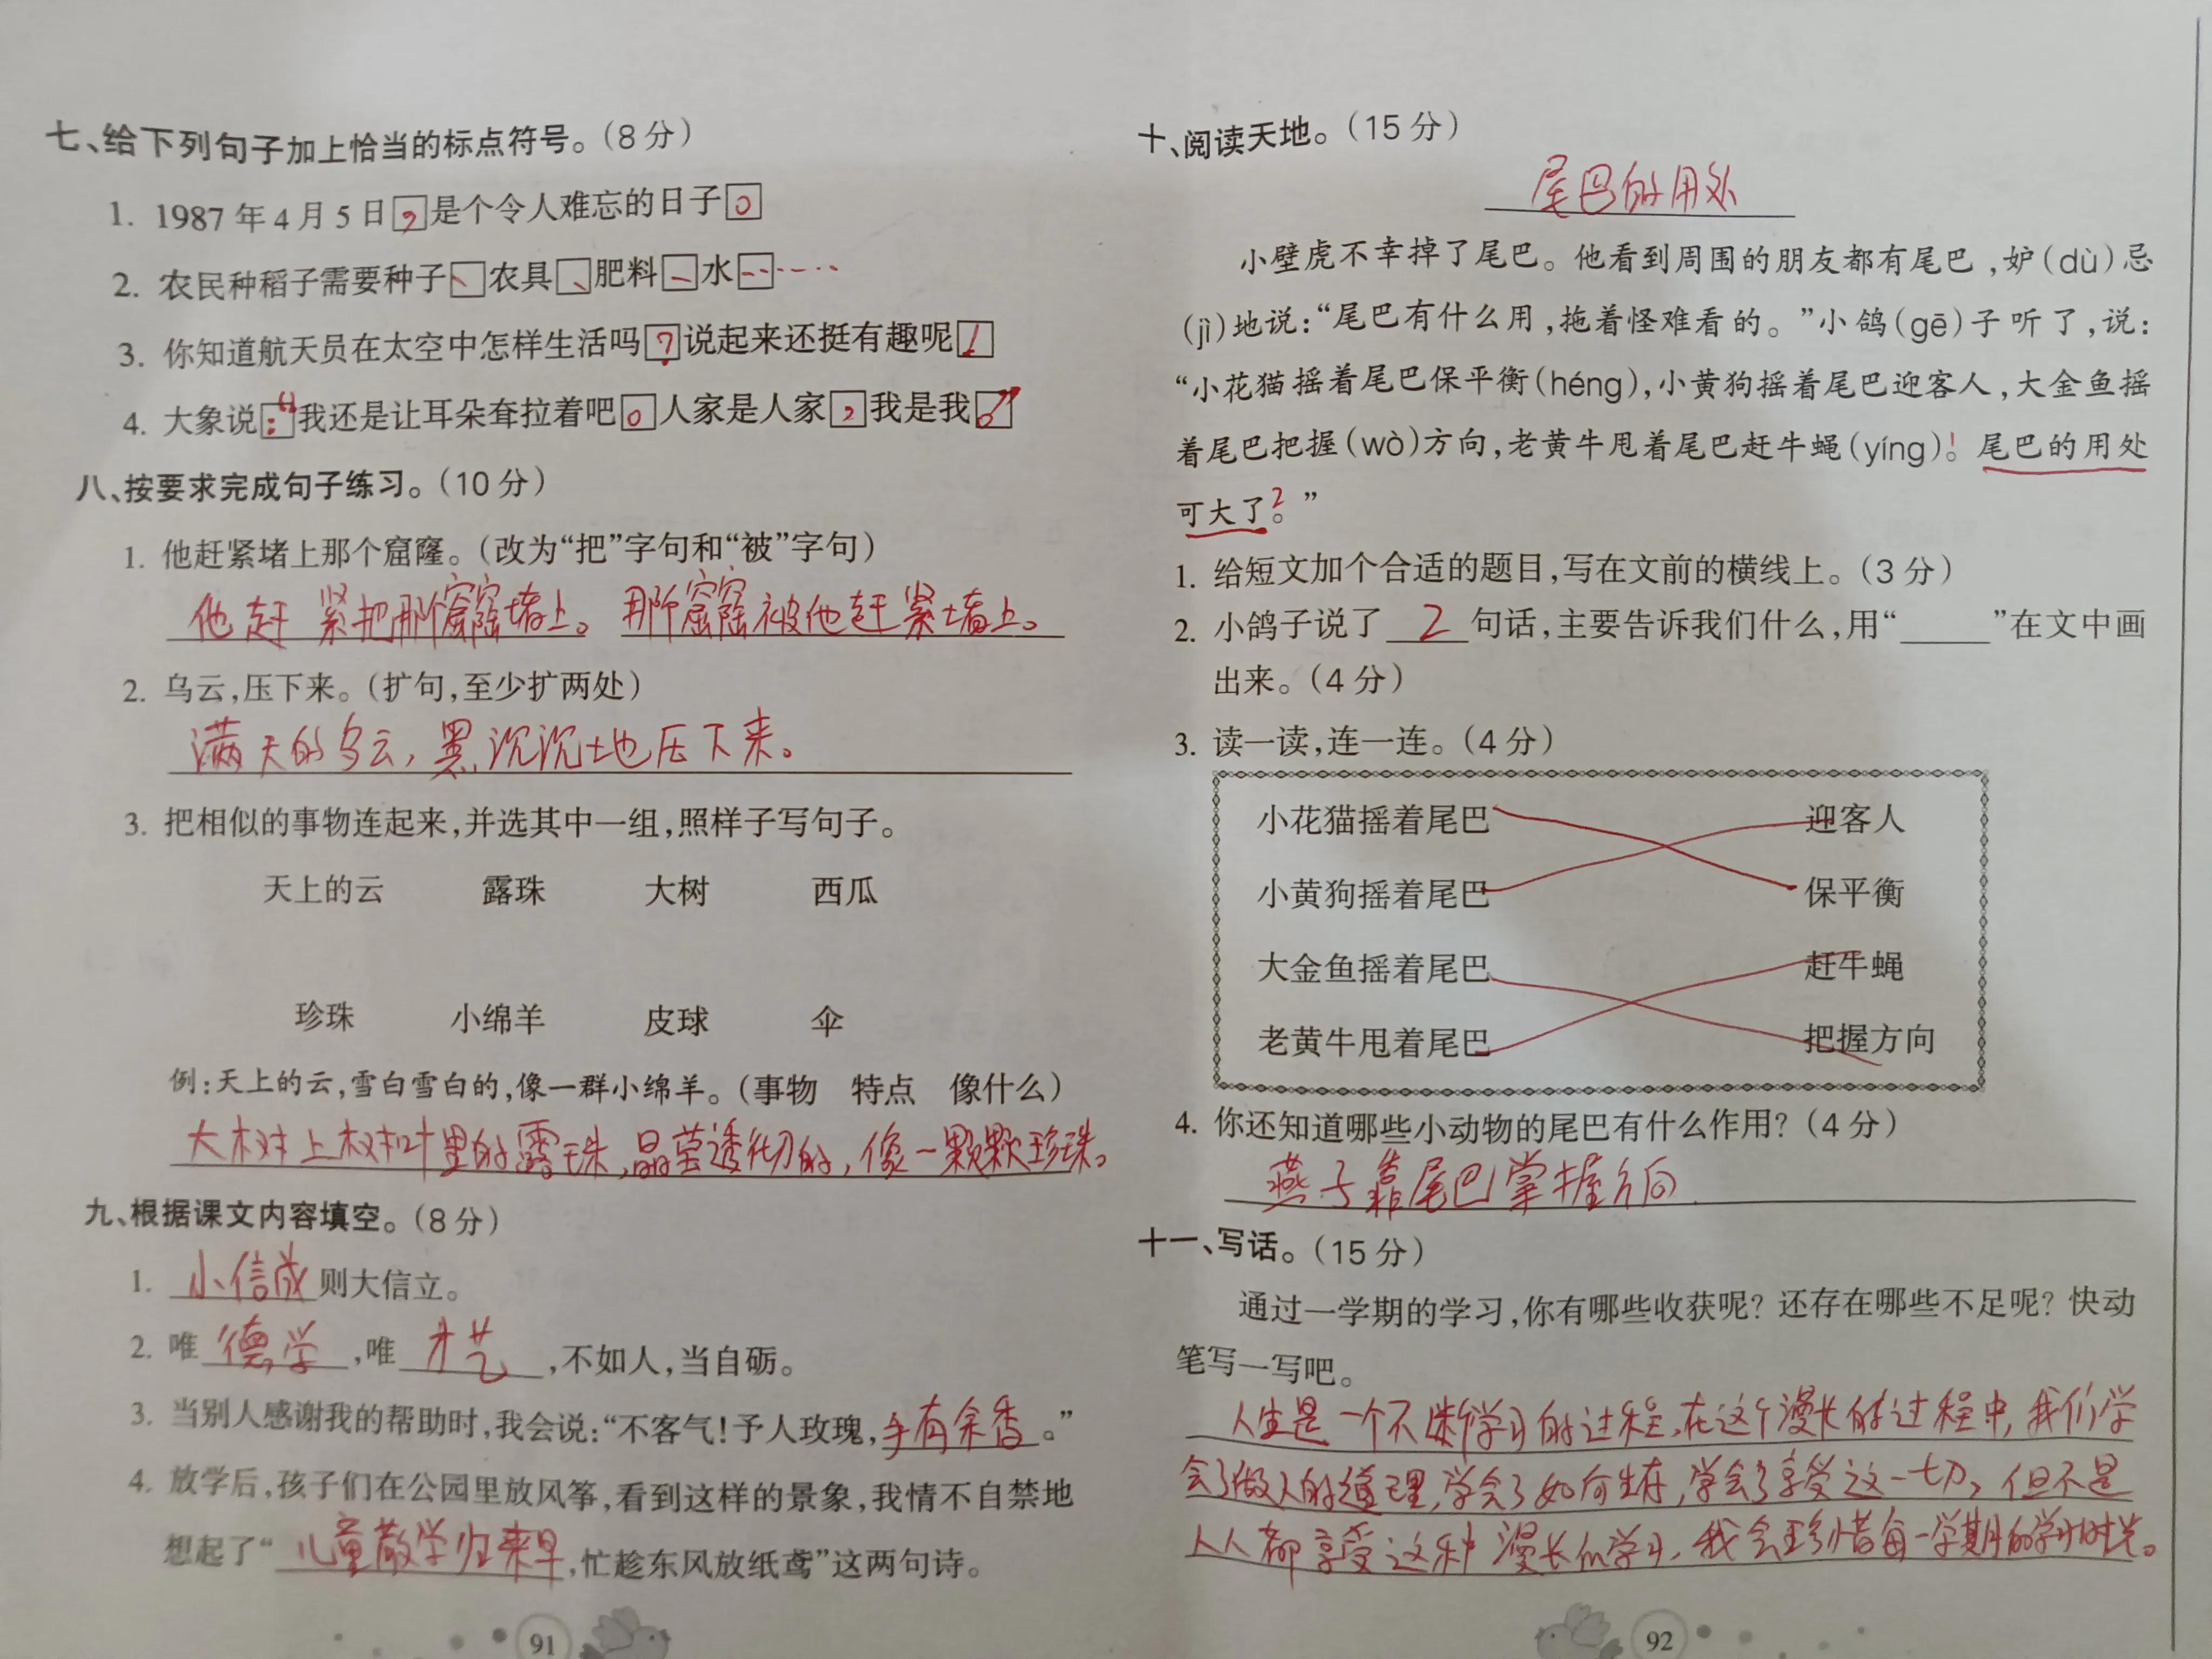 七、给下列句子加上恰当的标点符号。(8分)
1. 1987年4月5日，是个令人难忘的日子。
2. 农民种稻子需要种子、农具、肥料、水……
3. 你知道航天员在太空中怎样生活吗？说起来还挺有趣呢！
4. 大象说：“我还是让耳朵耷拉着吧。人家是人家，我是我。”
八、按要求完成句子练习。(10分)
1. 他赶紧堵上那个窟窿。(改为“把”字句和“被”字句)
他赶紧把那个窟窿堵上。那个窟窿被他赶紧堵上。
2. 乌云,压下来。(扩句,至少扩两处)
满天的乌云，黑沉沉地压下来。
3. 把相似的事物连起来,并选其中一组,照样子写句子。
天上的云 露珠 大树 西瓜
珍珠 小绵羊 皮球 伞
例:天上的云,雪白雪白的,像一群小绵羊。(事物 特点 像什么)
大树上树叶里的露珠,晶莹透彻的,像一颗颗珍珠。
九、根据课文内容填空。(8分)
1. 小信成则大信立。
2. 唯德学,唯才艺,不如人,当自砺。
3. 当别人感谢我的帮助时,我会说:“不客气!予人玫瑰,手有余香。”
4. 放学后,孩子们在公园里放风筝,看到这样的景象,我情不自禁地
想起了“儿童散学归来早,忙趁东风放纸鸢”这两句诗。
91
十、阅读天地。(15分)
尾巴的用处
小壁虎不幸掉了尾巴。他看到周围的朋友都有尾巴,妒(dù)忌
(jì)地说:“尾巴有什么用,拖着怪难看的。”小鸽(gē)子听了,说:
“小花猫摇着尾巴保平衡(héng),小黄狗摇着尾巴迎客人,大金鱼摇
着尾巴把握(wò)方向,老黄牛甩着尾巴赶牛蝇(yíng)。1 尾巴的用处
可大了。2”
1. 给短文加个合适的题目,写在文前的横线上。(3分)
2. 小鸽子说了2句话,主要告诉我们什么,用“____”在文中画
出来。(4分)
3. 读一读,连一连。(4分)
小花猫摇着尾巴 迎客人
小黄狗摇着尾巴 保平衡
大金鱼摇着尾巴 赶牛蝇
老黄牛甩着尾巴 把握方向
4. 你还知道哪些小动物的尾巴有什么作用?(4分)
燕子靠尾巴掌握方向.
十一、写话。(15分)
通过一学期的学习,你有哪些收获呢?还存在哪些不足呢?快动
笔写一写吧。
人生是一个不断学习的过程,在这个漫长的过程中,我们学
会了做人的道理,学会了如何生存,学会了享受这一切，但不是
人人都享受这种漫长的学习，我会珍惜每一学期的学习时光。
92